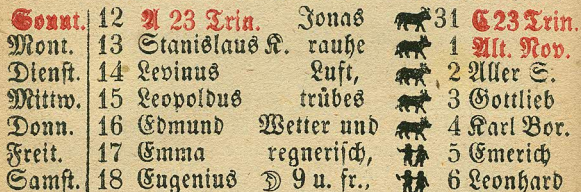 Sonnt. 12 A 23 Trin. Jonas 31 C 23 Trin.
Mont. 13 Stanislaus K. rauhe 1 Alt. Nov.
Dienst. 14 Levinus Luft, 2 Aller S.
Mittw. 15 Leopoldus trübes 3 Gottlieb
Donn. 16 Edmund Wetter und 4 Karl Bor.
Freit. 17 Emma regnerisch, 5 Emerich
Samst. 18 Eugenius ☽ 9 u. fr., 6 Leonhard